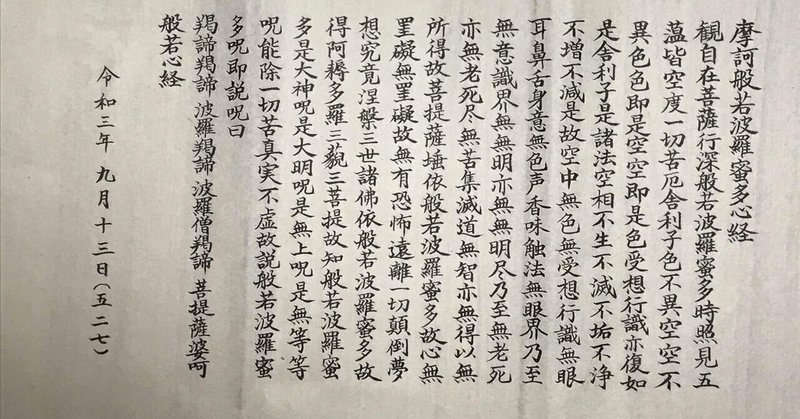 摩訶般若波羅蜜多心経
観自在菩薩行深般若波羅蜜多時照見五
蘊皆空度一切苦厄舎利子色不異空空不
異色色即是空空即是色受想行識亦復如
是舎利子是諸法空相不生不滅不垢不浄
不増不減是故空中無色無受想行識無眼
耳鼻舌身意無色声香味触法無眼界乃至
無意識界無無明亦無無明尽乃至無老死
亦無老死尽無苦集滅道無智亦無得以無
所得故菩提薩埵依般若波羅蜜多故心無
罣礙無罣礙故無有恐怖遠離一切顛倒夢
想究竟涅槃三世諸佛依般若波羅蜜多故
得阿耨多羅三藐三菩提故知般若波羅蜜
多是大神呪是大明呪是無上呪是無等等
呪能除一切苦真実不虚故説般若波羅蜜
多呪即説呪曰
羯諦羯諦 波羅羯諦 波羅僧羯諦 菩提薩婆呵
般若心経
令和三年 九月十三日(五二七)